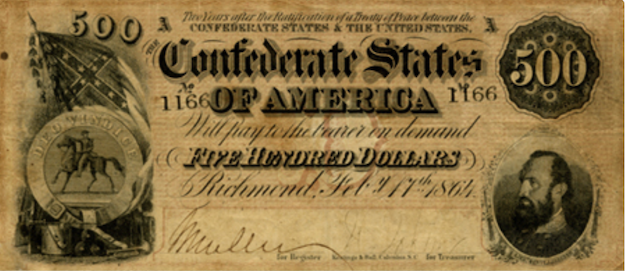 500 A Two Years after the Ratification of a Treaty of Peace between the A
CONFEDERATE STATES & THE UNITED STATES,
THE Confederate States 500
No 1166 OF AMERICA No 1166
Will pay to the bearer on demand
DEO VINDICE
FIVE HUNDRED DOLLARS
Richmond, Feby 17th 1864
for Register Keatinge & Ball, Columbia, S.C. for Treasurer